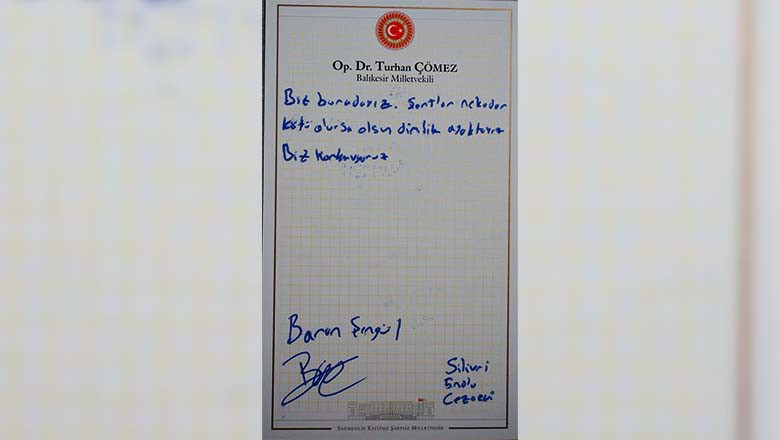 Op. Dr. Turhan ÇÖMEZ
Balıkesir Milletvekili
Biz buradayız. Şartlar nekadar
kötü olursa olsun dimdik ayaktayız
Biz korkusuruz
Baran Şengül
Silivri
5nolu
Cezaevi
EGEMENLİK KAYITSIZ ŞARTSIZ MİLLETİNDİR